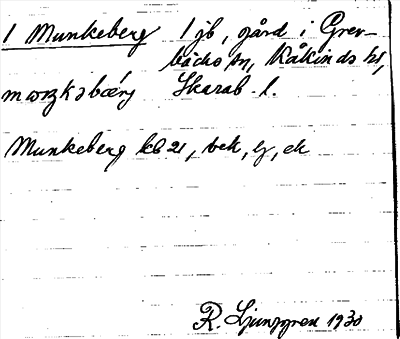 1 Munkeberg 1 jb, gård i Grev-
bäcks sn, Kåkinds hd,
Skarab. l.
Munkeberg kb 21, bek, ej, ek
R. Ljunggren 1930